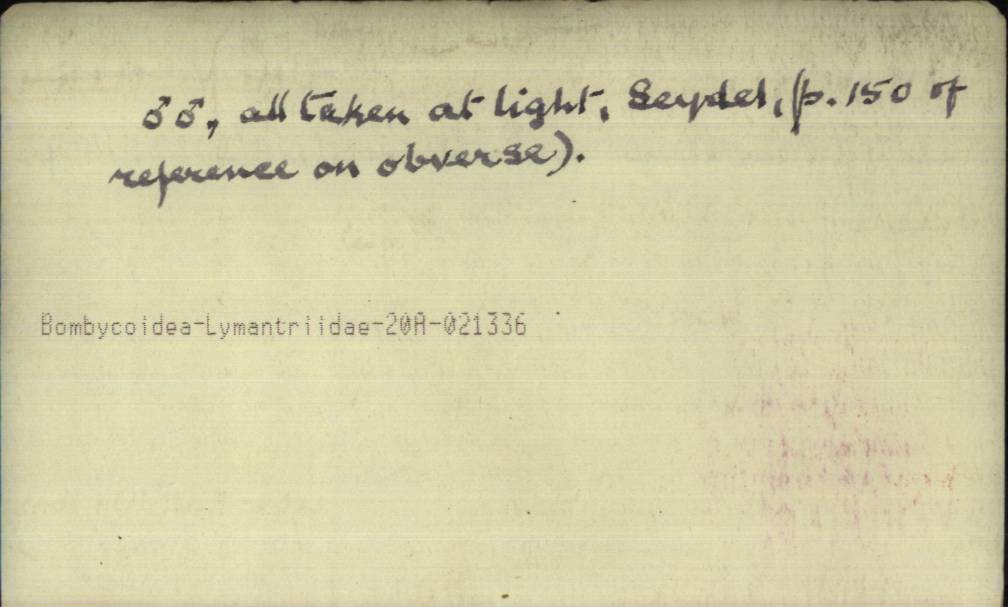 ♂♂, all taken at light, Seydel, (p. 150 of
reference on obverse).
Bombycoidea-Lymantriidae-20A-021336